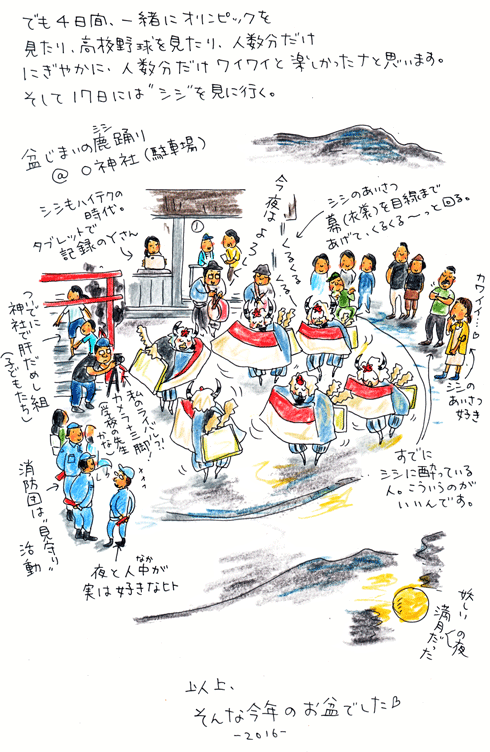 でも4日間、一緒にオリンピックを
見たり、高校野球を見たり、人数分だけ
にぎやかに、人数分だけワイワイと楽しかったナと思います。
そして17日には"シシ"を見に行く。
盆じまいの鹿踊り
シシ
@ ○神社(駐車場)
シシもハイテクの
時代。
タブレットで
記録のYさん
今夜はよろ
くるくる
くるくる〜
シシのあいさつ
幕(衣装)を目線まで
あげて、くるくる〜っと回る。
カワイイ…
シシの
あいさつ
好き
ついでに
神社で肝だめし組
(子どもたち)
私のライバル!?
カメラ+三脚!
学校の先生
かな
すでに
シシに酔っている
人。こういうのが
いいんです。
消防団は"見守り"
活動
夜と人中が
なか
実は好きなヒト
妖しい
満月だった
の夜
以上、
そんな今年のお盆でした
-2016-